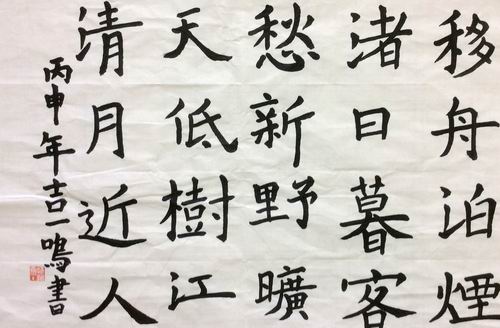 移舟泊煙
渚日暮客
愁新野曠
天低樹江
清月近人
丙申年吉一鳴書